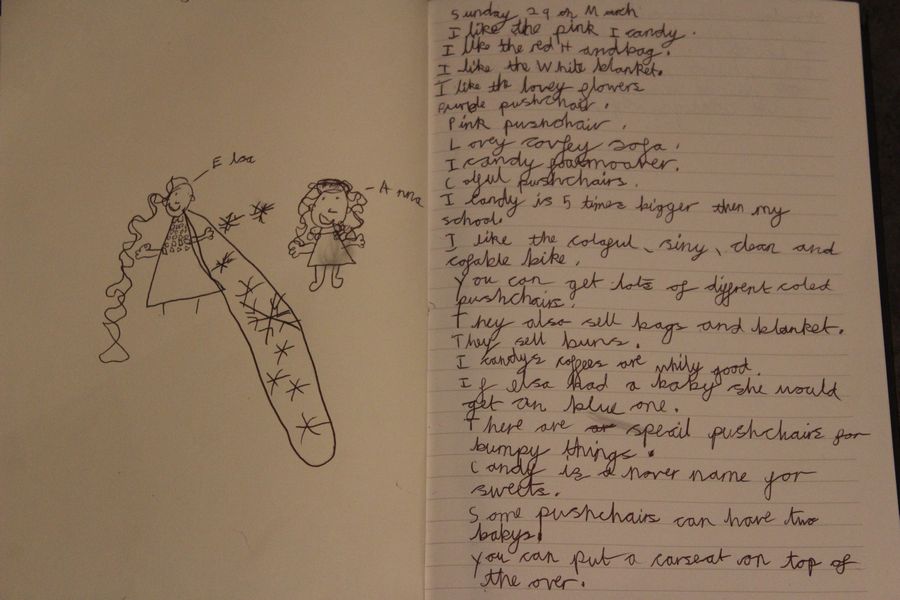 Elsa
Anna
Sunday 29 on March
I like the pink I candy.
I like the red Handbag.
I like the White blanket.
I like the lovey flowers
purple pushchair.
Pink pushchair.
Lovey comfey sofa.
I candy
Coluful pushchairs.
I candy is 5 times bigger then my
school.
I like the colaful, siny, clean and
cofable bike.
You can get lots of diffrent coled
pushchairs.
They also sell bags and blanket.
They sell buns.
I candys coffees are whily good.
If elsa had a baby she would
get an blue one.
There are speail pushchairs for
bumpy things.
Candy is a nover name for
sweets.
Some pushchairs can have two
babys.
You can put a carseat on top of
the over.